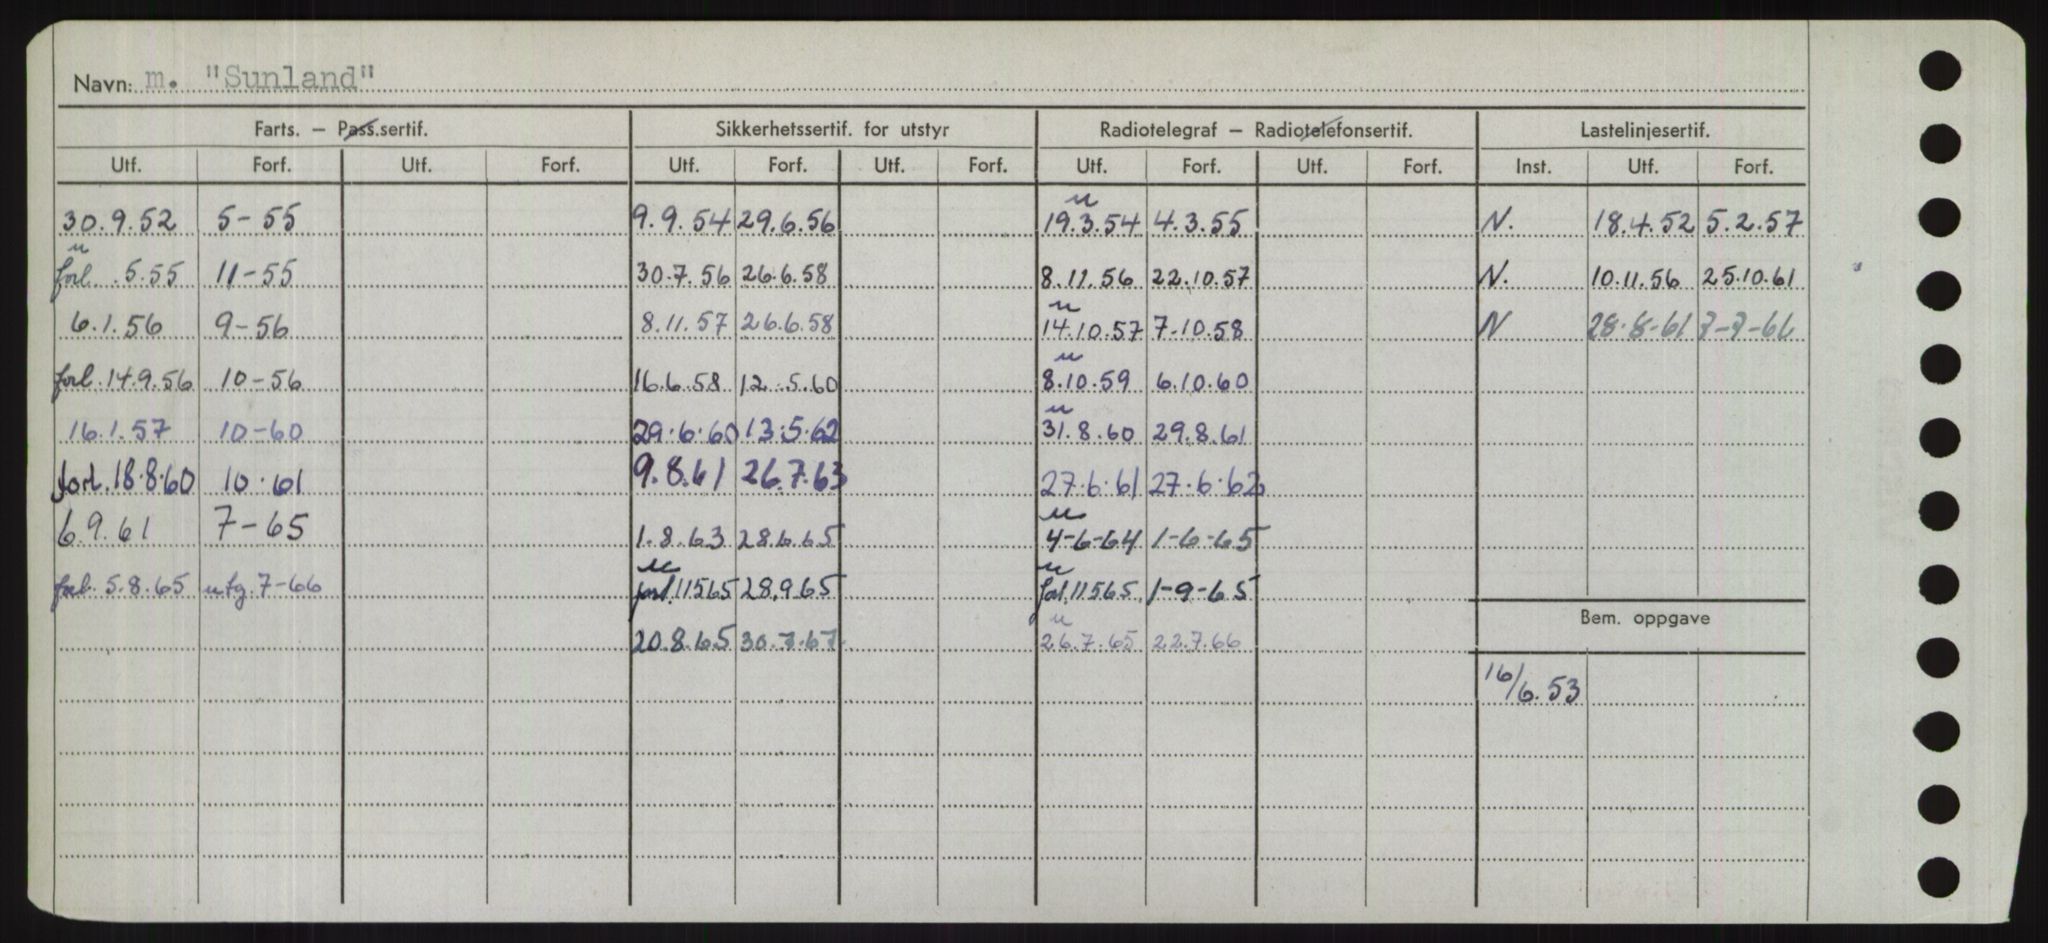 Navn: m. "Sunland"
Farts. — Pass.sertif. Sikkerhetssertif. for utstyr Radiotelegraf — Radiotelefonsertif. Lastelinjesertif.
Utf. Forf. Utf. Forf. Utf. Forf. Utf. Forf. Utf. Forf. Utf. Forf. Inst. Utf. Forf.
u
30.9.52 5-55 9.9.54 29.6.56 19.3.54 4.3.55 N. 18.4.52 5.2.57
u
forl. .5.55 11-55 30.7.56 26.6.58 8.11.56 22.10.57 N. 10.11.56 25.10.61
u
6.1.56 9-56 8.11.57 26.6.58 14.10.57 7-10.58 N 28-8-61 7-7-66
u
forl. 14.9.56 10-56 16.6.58 12.5.60 8.10.59 6.10.60
u
16.1.57 10-60 29.6.60 13.5.62 31.8.60 29.8.61
forl. 18.8.60 10.61 9.8.61 26.7.63 27.6.61 27.6.62
u
6.9.61 7-65 1.8.63 28.6.65 4-6-64 1-6-65
u u
forl. 5.8.65 utg. 7-66 forl. 11565 28.9.65 forl. 11565 1-9-65
Bem. oppgave
u
20.8.65 30.7.67. 26.7.65 22.7.66
16/6.53